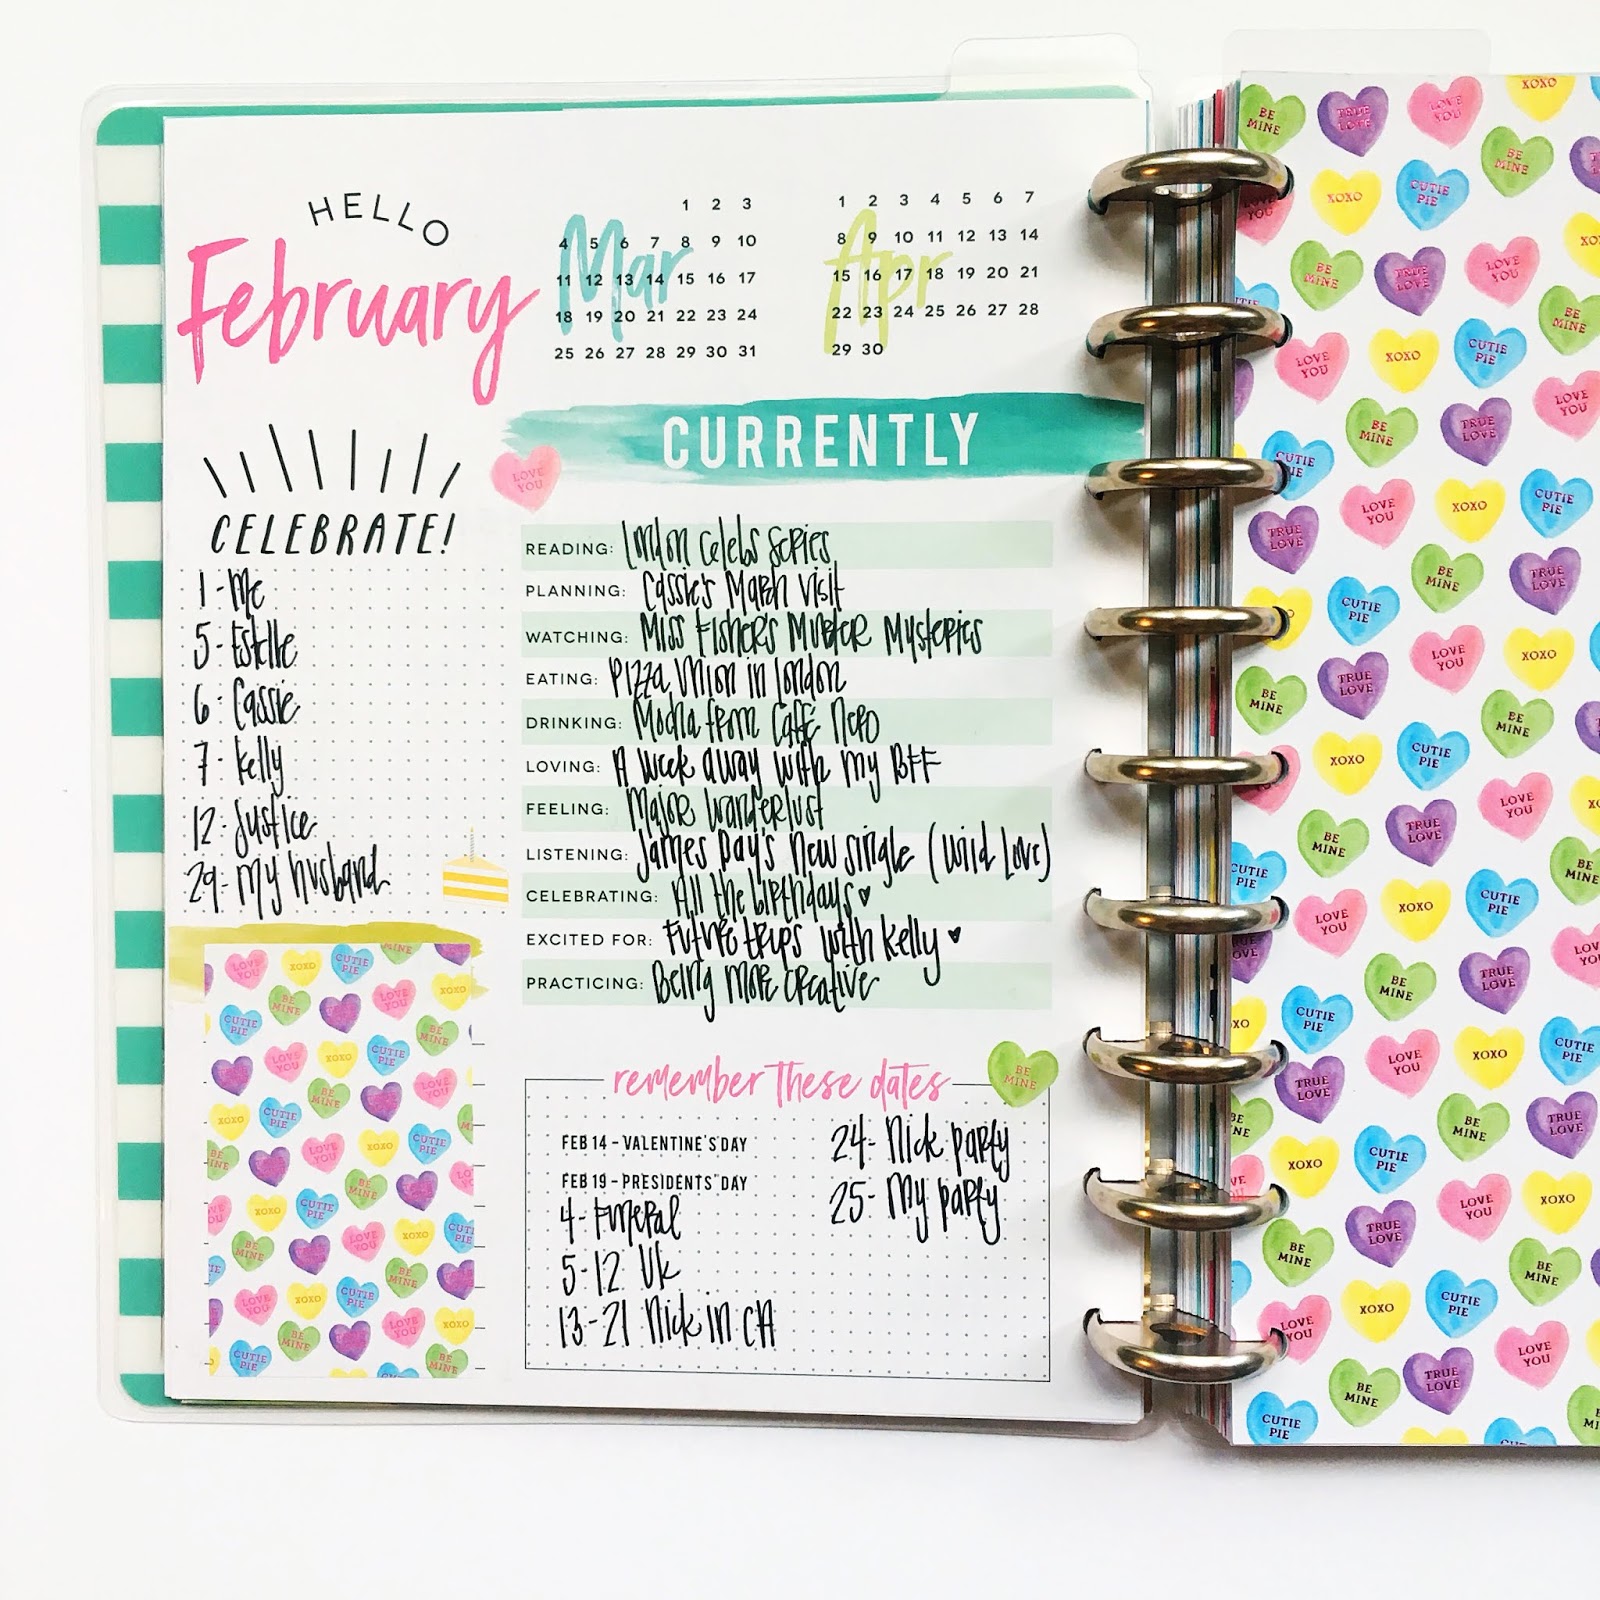 HELLO
February
Mar
1 2 3
4 5 6 7 8 9 10
11 12 13 14 15 16 17
18 19 20 21 22 23 24
25 26 27 28 29 30 31
Apr
1 2 3 4 5 6 7
8 9 10 11 12 13 14
15 16 17 18 19 20 21
22 23 24 25 26 27 28
29 30
CELEBRATE!
1 - Me
5 - Estelle
6 - Cassie
7 - Kelly
12 - Justice
29 - My husband
CURRENTLY
LOVE YOU
READING: London Celebs Series
PLANNING: Cassie's March visit
WATCHING: Miss Fisher's Murder Mysteries
EATING: Pizza Union in London
DRINKING: Mocha from Caffé Nero
LOVING: A week away with my BFF
FEELING: Major wanderlust
LISTENING: James Bay's new single (Wild Love)
CELEBRATING: All the birthdays
EXCITED FOR: Future trips with Kelly
PRACTICING: Being more creative
remember these dates
BE MINE
FEB 14 - VALENTINE'S DAY
FEB 19 - PRESIDENTS' DAY
4 - Funeral
5-12 UK
13-21 Nick in CA
24 - Nick party
25 - My party
LOVE YOU
XOXO
CUTIE PIE
BE MINE
TRUE LOVE